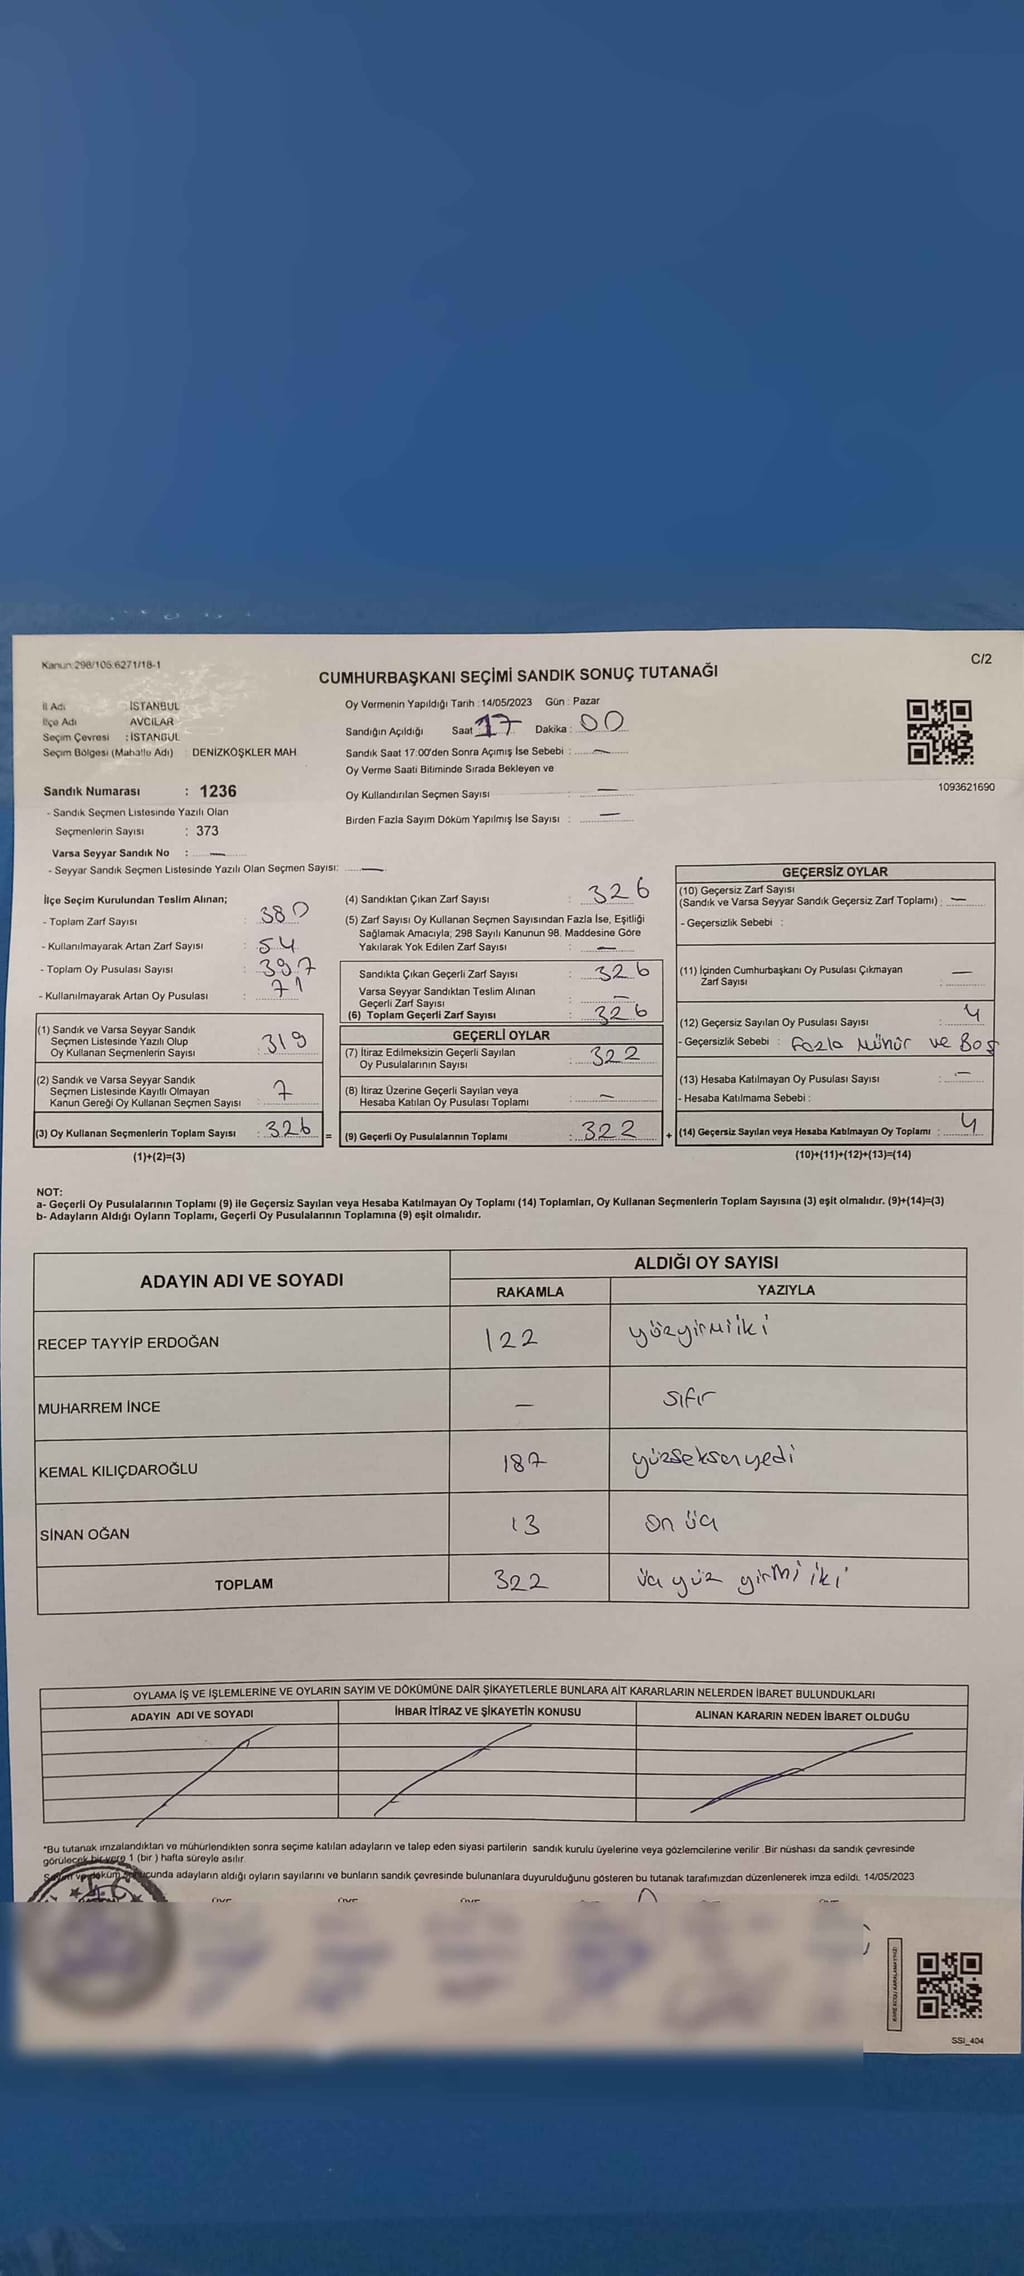 Kanun:298/105.6271/18-1
C/2
CUMHURBAŞKANI SEÇİMİ SANDIK SONUÇ TUTANAĞI
İl Adı : İSTANBUL
İlçe Adı AVCILAR
Seçim Çevresi : İSTANBUL
Seçim Bölgesi (Mahalle Adı) : DENİZKÖŞKLER MAH
Sandık Numarası : 1236
- Sandık Seçmen Listesinde Yazılı Olan
Seçmenlerin Sayısı : 373
Varsa Seyyar Sandık No : —
- Seyyar Sandık Seçmen Listesinde Yazılı Olan Seçmen Sayısı: —
Oy Vermenin Yapıldığı Tarih : 14/05/2023 Gün : Pazar
Sandığın Açıldığı Saat 17 Dakika : 00
Sandık Saat 17:00'den Sonra Açımış İse Sebebi : —
Oy Verme Saati Bitiminde Sırada Bekleyen ve
Oy Kullandırılan Seçmen Sayısı : —
Birden Fazla Sayım Döküm Yapılmış İse Sayısı : —
1093621690
İlçe Seçim Kurulundan Teslim Alınan;
- Toplam Zarf Sayısı : 380
- Kullanılmayarak Artan Zarf Sayısı : 54
- Toplam Oy Pusulası Sayısı : 397
- Kullanılmayarak Artan Oy Pusulası : 71
(1) Sandık ve Varsa Seyyar Sandık
Seçmen Listesinde Yazılı Olup
Oy Kullanan Seçmenlerin Sayısı : 319
(2) Sandık ve Varsa Seyyar Sandık
Seçmen Listesinde Kayıtlı Olmayan
Kanun Gereği Oy Kullanan Seçmen Sayısı : 7
(3) Oy Kullanan Seçmenlerin Toplam Sayısı : 326
(1)+(2)=(3)
(4) Sandıktan Çıkan Zarf Sayısı : 326
(5) Zarf Sayısı Oy Kullanan Seçmen Sayısından Fazla İse, Eşitliği
Sağlamak Amacıyla; 298 Sayılı Kanunun 98. Maddesine Göre
Yakılarak Yok Edilen Zarf Sayısı : —
Sandıkta Çıkan Geçerli Zarf Sayısı : 326
Varsa Seyyar Sandıktan Teslim Alınan
Geçerli Zarf Sayısı : —
(6) Toplam Geçerli Zarf Sayısı : 326
GEÇERLİ OYLAR
(7) İtiraz Edilmeksizin Geçerli Sayılan
Oy Pusulalarının Sayısı : 322
(8) İtiraz Üzerine Geçerli Sayılan veya
Hesaba Katılan Oy Pusulası Toplamı : —
= (9) Geçerli Oy Pusulalarının Toplamı : 322 +
GEÇERSİZ OYLAR
(10) Geçersiz Zarf Sayısı
(Sandık ve Varsa Seyyar Sandık Geçersiz Zarf Toplamı) : —
- Geçersizlik Sebebi :
(11) İçinden Cumhurbaşkanı Oy Pusulası Çıkmayan
Zarf Sayısı : —
(12) Geçersiz Sayılan Oy Pusulası Sayısı : 4
- Geçersizlik Sebebi : Fazla Mühür ve Boş
(13) Hesaba Katılmayan Oy Pusulası Sayısı : —
- Hesaba Katılmama Sebebi :
(14) Geçersiz Sayılan veya Hesaba Katılmayan Oy Toplamı : 4
(10)+(11)+(12)+(13)=(14)
NOT:
a- Geçerli Oy Pusulalarının Toplamı (9) ile Geçersiz Sayılan veya Hesaba Katılmayan Oy Toplamı (14) Toplamları, Oy Kullanan Seçmenlerin Toplam Sayısına (3) eşit olmalıdır. (9)+(14)=(3)
b- Adayların Aldığı Oyların Toplamı, Geçerli Oy Pusulalarının Toplamına (9) eşit olmalıdır.
ADAYIN ADI VE SOYADI ALDIĞI OY SAYISI
RAKAMLA YAZIYLA
RECEP TAYYİP ERDOĞAN 122 yüzyirmiiki
MUHARREM İNCE — sıfır
KEMAL KILIÇDAROĞLU 187 yüzseksenyedi
SİNAN OĞAN 13 on üç
TOPLAM 322 üç yüz yirmi iki
OYLAMA İŞ VE İŞLEMLERİNE VE OYLARIN SAYIM VE DÖKÜMÜNE DAİR ŞİKAYETLERLE BUNLARA AİT KARARLARIN NELERDEN İBARET BULUNDUKLARI
ADAYIN ADI VE SOYADI İHBAR İTİRAZ VE ŞİKAYETİN KONUSU ALINAN KARARIN NEDEN İBARET OLDUĞU
*Bu tutanak imzalandıktan ve mühürlendikten sonra seçime katılan adayların ve talep eden siyasi partilerin sandık kurulu üyelerine veya gözlemcilerine verilir .Bir nüshası da sandık çevresinde
görülecek bir yere 1 (bir ) hafta süreyle asılır.
Sayım ve döküm sonucunda adayların aldığı oyların sayılarını ve bunların sandık çevresinde bulunanlara duyurulduğunu gösteren bu tutanak tarafımızdan düzenlenerek imza edildi. 14/05/2023
SSI_404